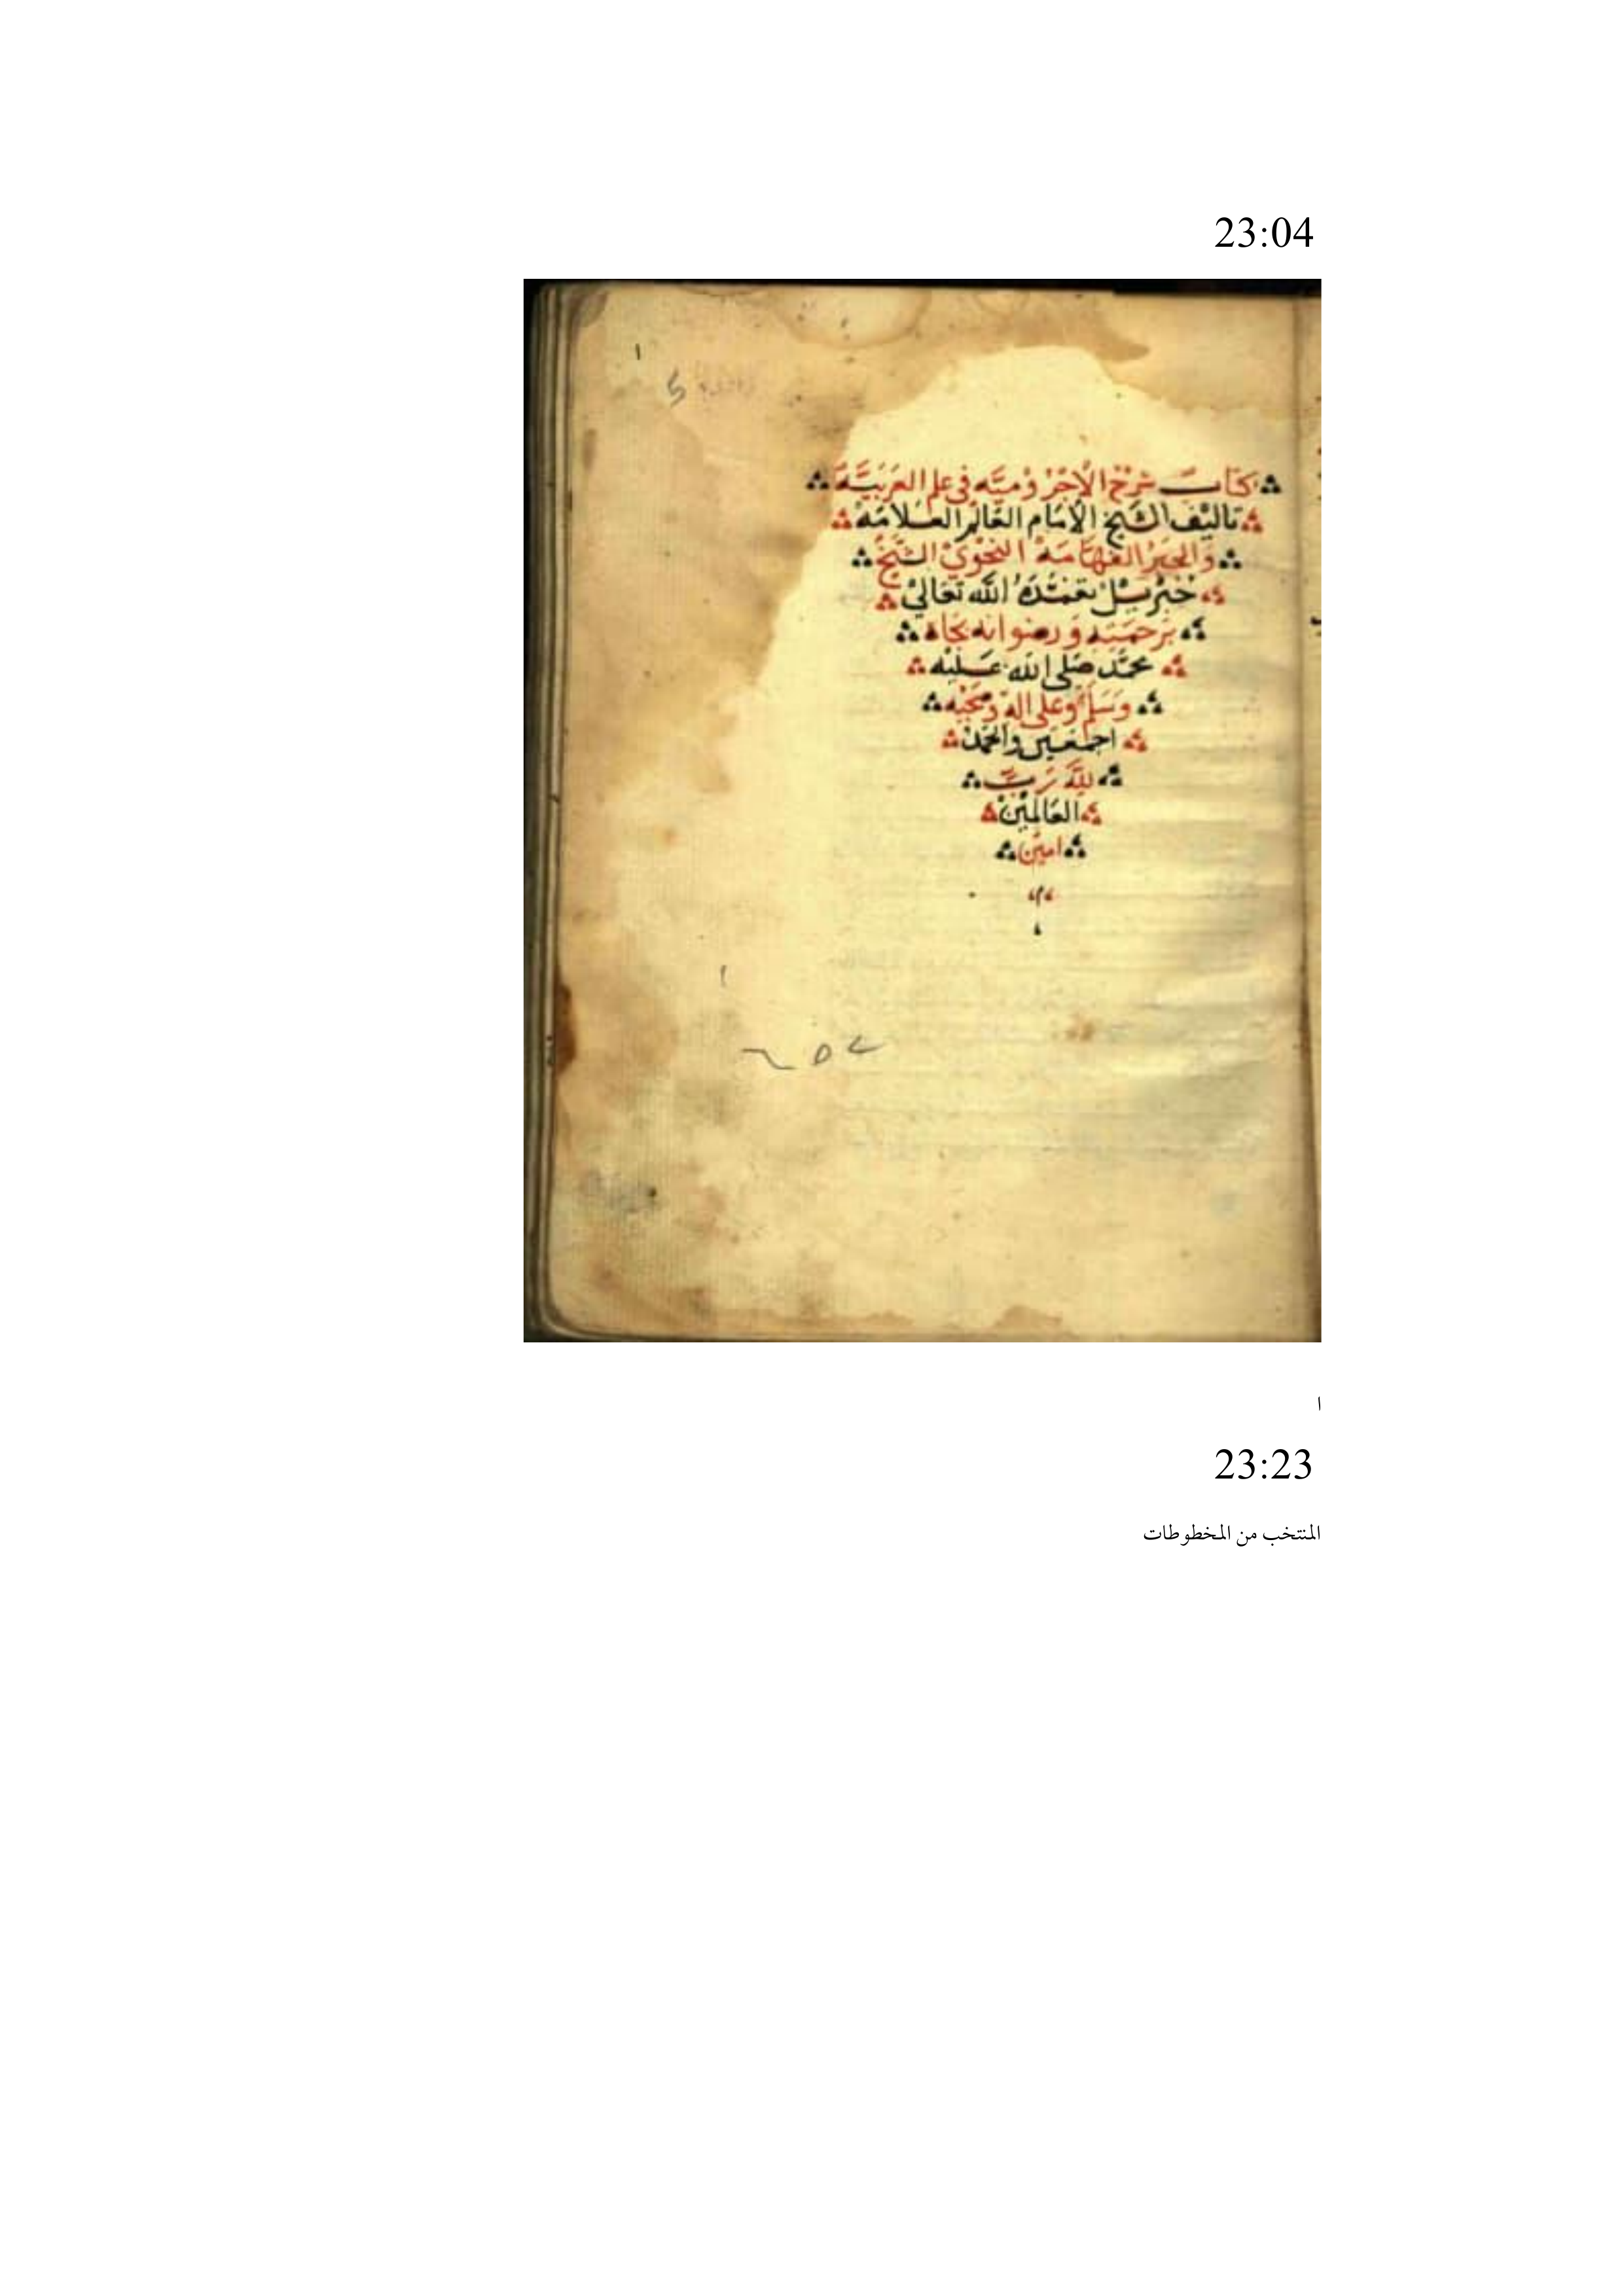 23:04
١
كتاب شرح الاجرومية في علم العربية
تاليف الشيخ الامام العالم العلامة
والحبر الفهامة النحوي الشيخ
جبريل تغمده الله تعالى
برحمته ورضوانه بجاه
محمد صلى الله عليه
وسلم وعلى اله وصحبه
اجمعين والحمد
لله رب
العالمين
امين
م
ا
23:23
المنتخب من المخطوطات